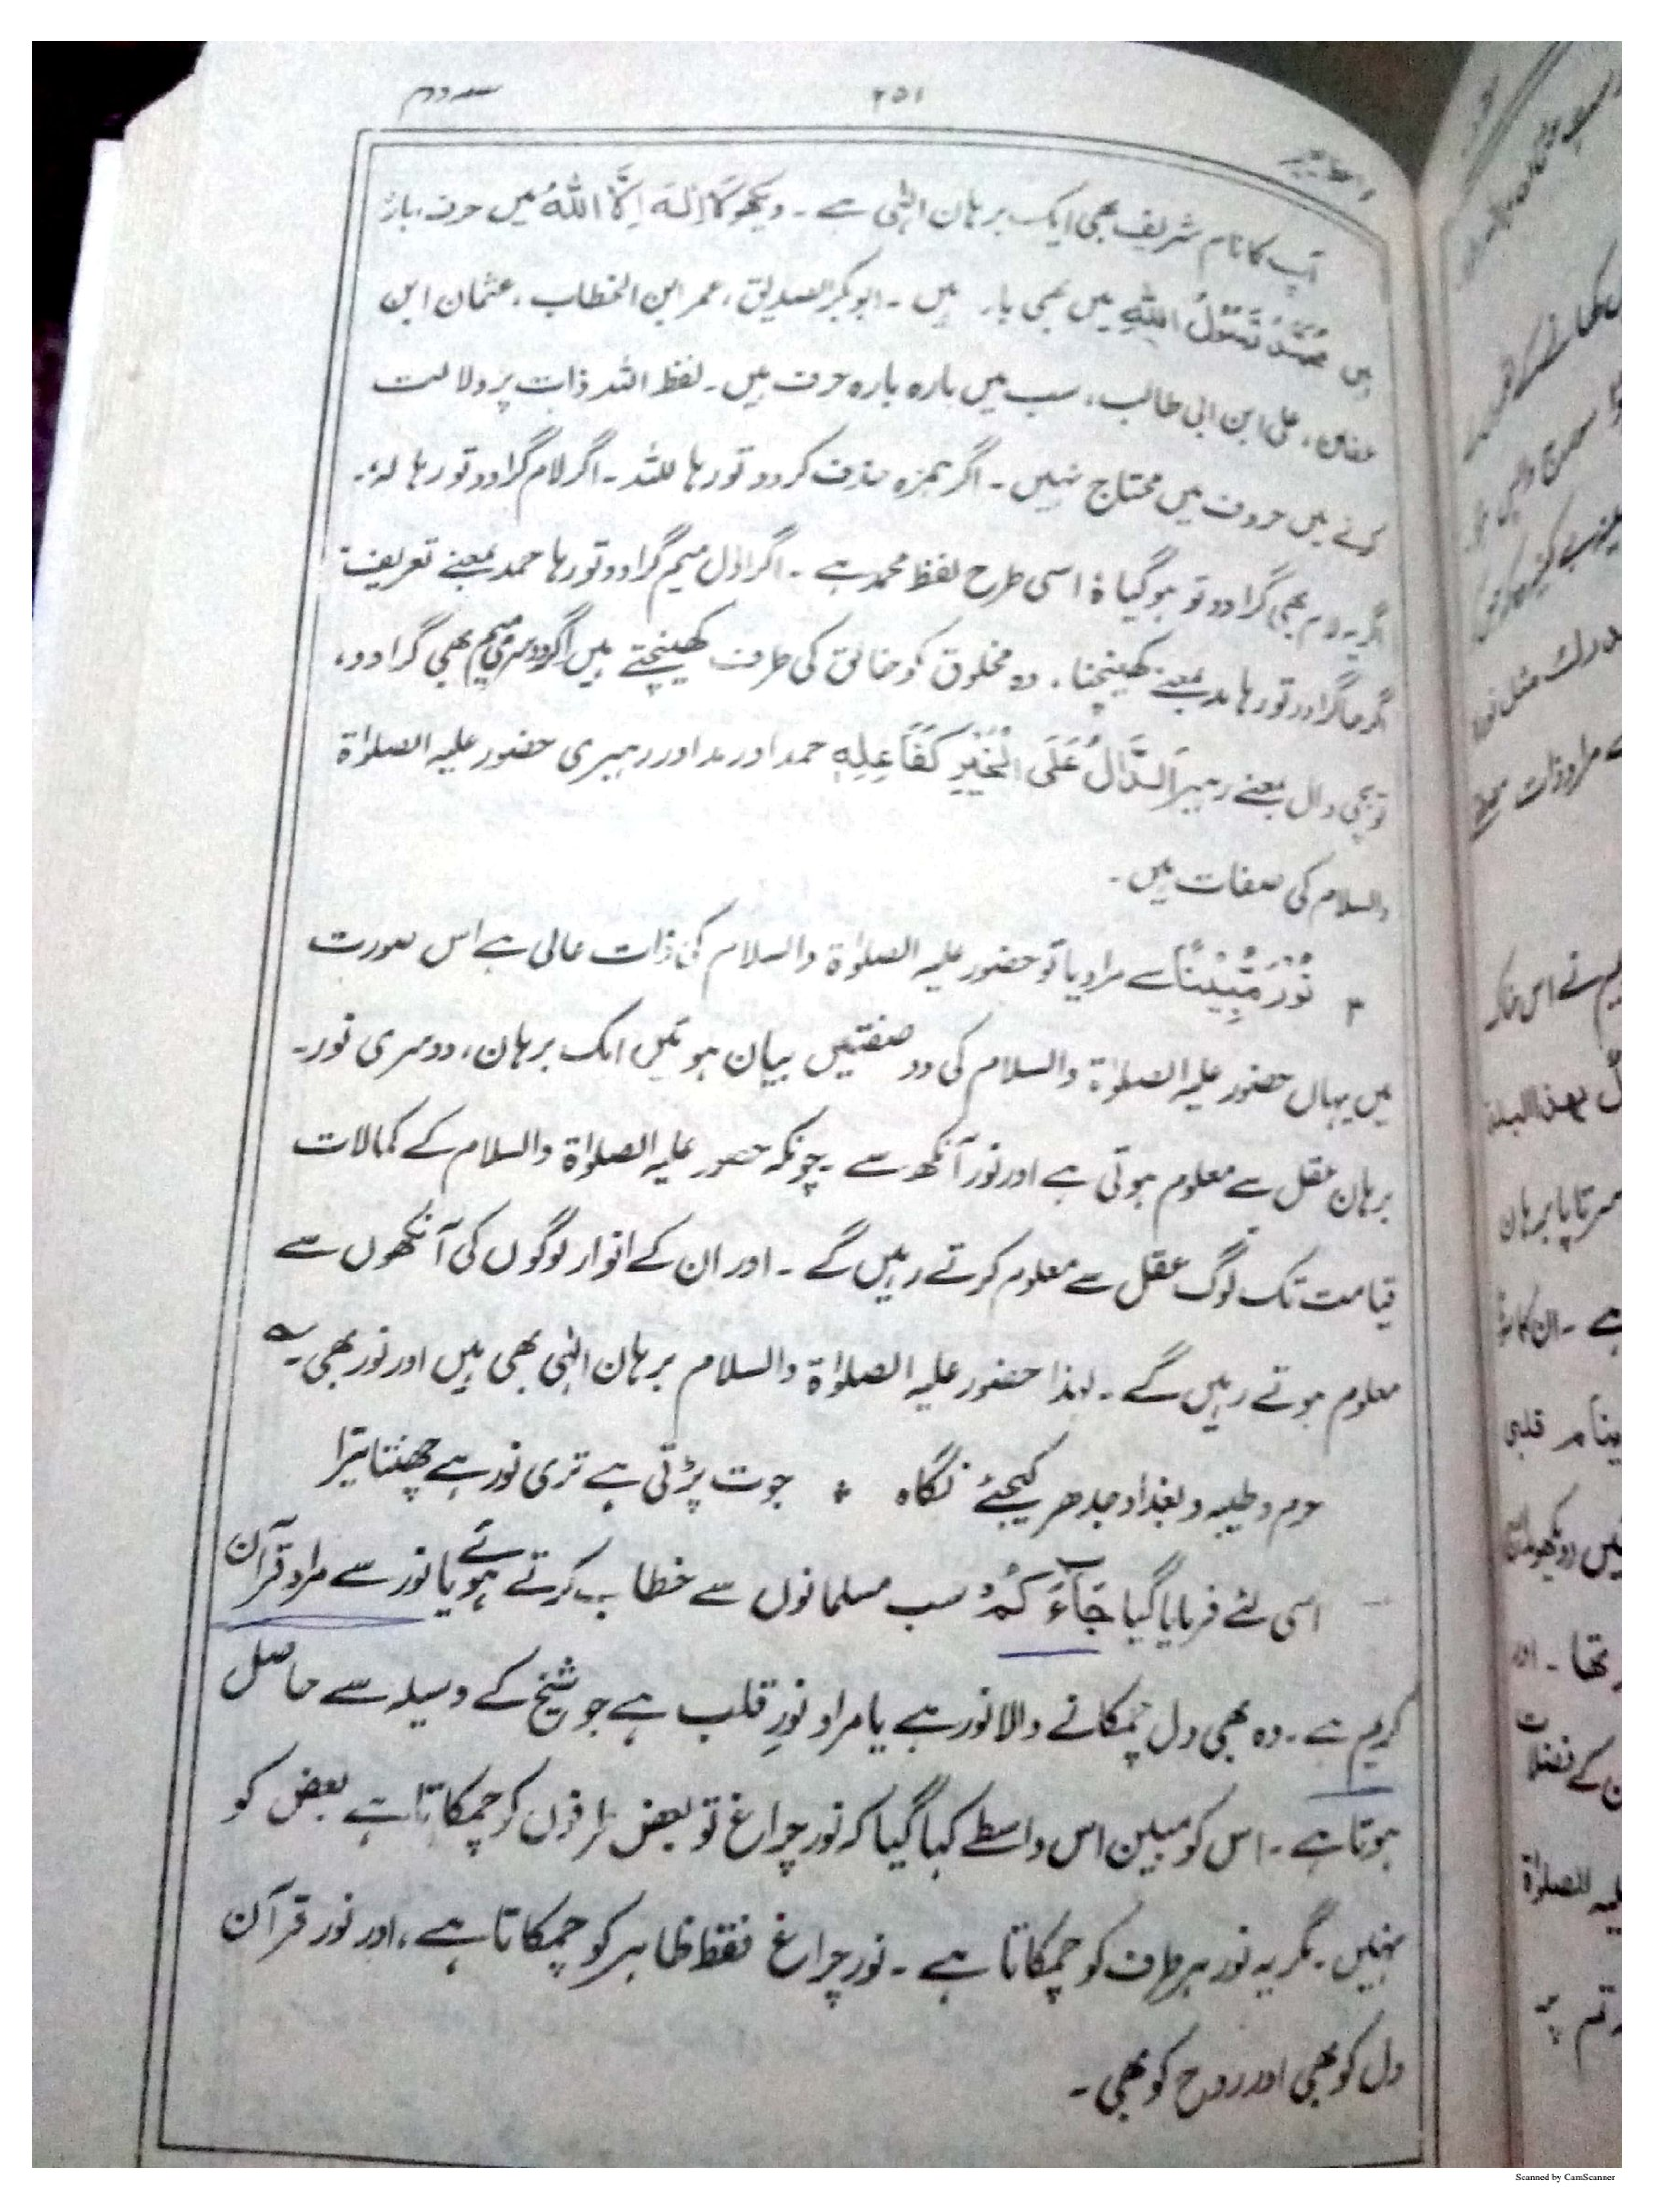 ۲۵۱
آپ کا نام شریف بھی ایک برہان الٰہی ہے ۔ دیکھو لَا اِلٰہَ اِلَّا اللّٰہُ میں حرف بارہ
ہیں مُحَمَّدٌ رَّسُوْلُ اللّٰہِ میں بھی بارہ ہیں ۔ ابوبکر الصدیق ، عمر ابن الخطاب ، عثمان ابن
عفان ، علی ابن ابی طالب ، سب میں بارہ بارہ حرف ہیں ۔ لفظ اللہ ذات پر دلالت
کرنے میں حروف میں محتاج نہیں ۔ اگر ہمزہ حذف کر دو تو رہا للہ ۔ اگر لام گرا دو تو رہا لہٗ ۔
اگر یہ لام بھی گرا دو تو ہو گیا ہٗ اسی طرح لفظ محمد ہے ۔ اگر اول میم گرا دو تو رہا حمد بمعنے تعریف
اگر حا گرا دو تو رہا مد بمعنے کھینچنا ۔ وہ مخلوق کو خالق کی طرف کھینچتے ہیں اگر دوسری میم بھی گرا دو ،
تو بچی دال بمعنے رہبر اَلدَّالُّ عَلَی الْخَیْرِ کَفَاعِلِہٖ حمد اور مد اور رہبری حضور علیہ الصلوٰۃ
والسلام کی صفات ہیں ۔
۳ نُوْرًا مُّبِیْنًا سے مراد یا تو حضور علیہ الصلوٰۃ والسلام کی ذات عالی ہے اس صورت
میں یہاں حضور علیہ الصلوٰۃ والسلام کی دو صفتیں بیان ہوئیں ایک برہان ، دوسری نور ۔
برہان عقل سے معلوم ہوتی ہے اور نور آنکھ سے ۔ چونکہ حضور علیہ الصلوٰۃ والسلام کے کمالات
قیامت تک لوگ عقل سے معلوم کرتے رہیں گے ۔ اور ان کے انوار لوگوں کی آنکھوں سے
معلوم ہوتے رہیں گے ۔ لہذا حضور علیہ الصلوٰۃ والسلام برہان الٰہی بھی ہیں اور نور بھی ۔ ؎
حرم و طیبہ و بغداد جدھر کیجئے نگاہ ؞ جوت پڑتی ہے تری نور ہے چھنتا تیرا
اسی لئے فرمایا گیا جَآءَکُمْ سب مسلمانوں سے خطاب کرتے ہوئے یا نور سے مراد قرآن
کریم ہے ۔ وہ بھی دل چمکانے والا نور ہے یا مراد نورِ قلب ہے جو شیخ کے وسیلہ سے حاصل
ہوتا ہے ۔ اس کو مبین اس واسطے کہا گیا کہ نور چراغ تو بعض طرفوں کو چمکاتا ہے بعض کو
نہیں ۔ مگر یہ نور ہر طرف کو چمکاتا ہے ۔ نور چراغ فقط ظاہر کو چمکاتا ہے ، اور نور قرآن
دل کو بھی اور روح کو بھی ۔
Scanned by CamScanner